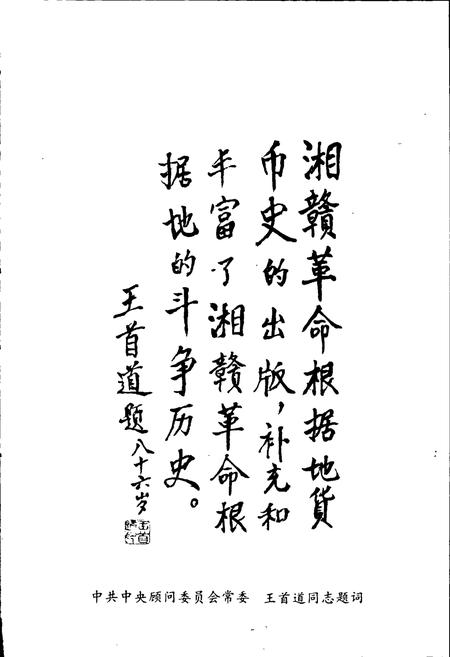 湘赣革命根据地货
币史的出版，补充和
丰富了湘赣革命根
据地的斗争历史。
王首道题八十六岁
中共中央顾问委员会常委　王首道同志题词